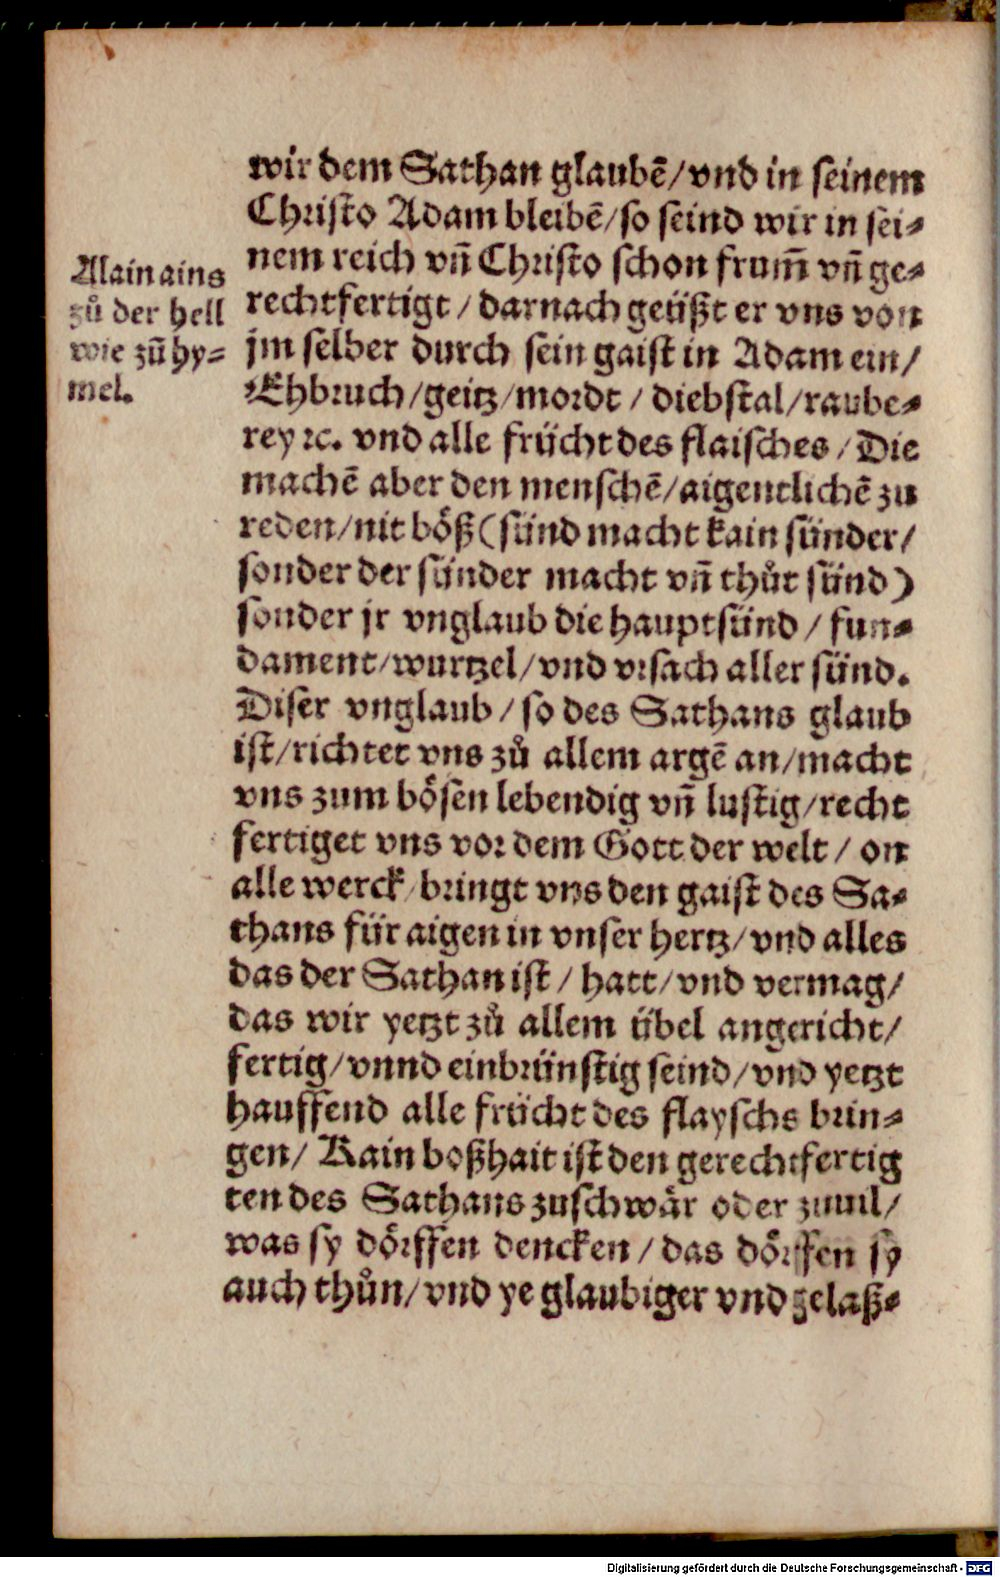 wir dem Sathan glaubē/vnd in seinem
Christo Adam bleibē/so seind wir in sei⸗
nem reich vn̄ Christo schon frum̄ vn̄ ge⸗
rechtfertigt / darnach geüßt er vns von
jm selber durch sein gaist in Adam ein/
Ehbruch/geitz/mordt / diebstal/raube⸗
rey ꝛc. vnd alle frücht des flaisches / Die
machē aber den menschē/aigentlichē zu
reden/nit böß (sünd macht kain sünder/
sonder der sünder macht vn̄ thůt sünd)
sonder jr vnglaub die hauptsünd / fun⸗
dament/wurtzel/vnd vrsach aller sünd.
Diser vnglaub / so des Sathans glaub
ist/richtet vns zů allem argē an/macht
vns zum bösen lebendig vn̄ lustig/recht
fertiget vns vor dem Gott der welt / on
alle werck/bringt vns den gaist des Sa⸗
thans für aigen in vnser hertz/vnd alles
das der Sathan ist / hatt/vnd vermag/
das wir yetzt zů allem übel angericht/
fertig/vnnd einbrünstig seind/vnd yetzt
hauffend alle frücht des flayschs brin⸗
gen/ Kain boßhait ist den gerechtfertig
ten des Sathans zuschwär oder zuuil/
was sy dörffen dencken / das dörffen sy
auch thůn/vnd ye glaubiger vnd gelaß⸗
Alain ains
zů der hell
wie zů hy⸗
mel.
Digitalisierung gefördert durch die Deutsche Forschungsgemeinschaft - DFG